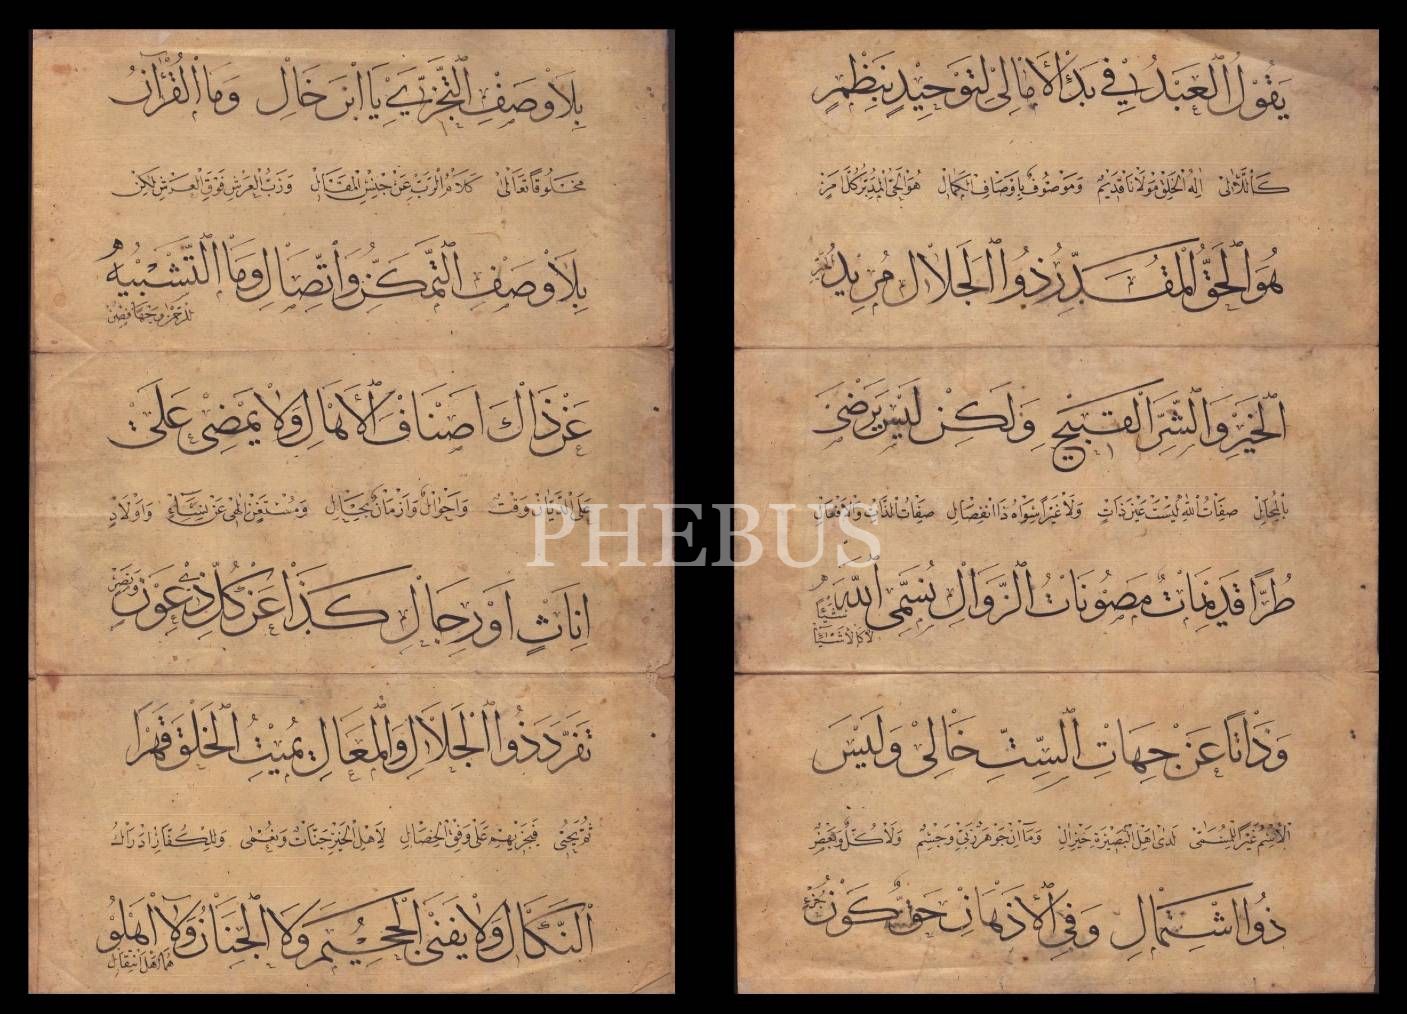 يَقُوْلُ الْعَبْدُ فِي بَدْءِ الْأَمَالِيْ لِتَوْحِيْدٍ بِنَظْمٍ
كَاللَّآلِىْ اِلٰهُ الْخَلْقِ مَوْلَانَا قَدِيْمٌ وَمَوْصُوْفٌ بِاَوْصَافِ الْكَمَالِ هُوَ الْحَيُّ الْمُدَبِّرُ كُلَّ اَمْرٍ
هُوَ الْحَقُّ الْمُقَدِّرُ ذُو الْجَلَالِ مُرِيْدُ
الْخَيْرِ وَالشَّرِّ الْقَبِيْحِ وَلٰكِنْ لَيْسَ يَرْضَى
بِالْمُحَالِ صِفَاتُ اللهِ لَيْسَتْ عَيْنَ ذَاتٍ وَلَا غَيْرًا سِوَاهُ ذَا انْفِصَالِ صِفَاتُ الذَّاتِ وَالْاَفْعَالِ
طُرًّا قَدِيْمَاتٌ مَصُوْنَاتُ الزَّوَالِ نُسَمِّى اللهَ
شَيْئًا
لَا كَالْاَشْيَاءِ
وَذَاتًا عَنْ جِهَاتِ السِّتِّ خَالِىْ وَلَيْسَ
الْاِسْمُ غَيْرًا لِلْمُسَمّٰى لَدٰى اَهْلِ الْبَصِيْرَةِ خَيْرِ اٰلِ وَمَا اِنْ جَوْهَرٌ رَبِّيْ وَجِسْمٌ وَلَا كُلٌّ وَبَعْضٌ
ذُو اشْتِمَالِ وَفِي الْاَذْهَانِ حَقٌّ كَوْنُ جُزْءٍ
بِلَا وَصْفِ التَّجَزِّيْ يَا ابْنَ خَالِ وَمَا الْقُرْاٰنُ
مَخْلُوْقًا تَعَالٰى كَلَامُ الرَّبِّ عَنْ جِنْسِ الْمَقَالِ وَرَبُّ الْعَرْشِ فَوْقَ الْعَرْشِ لٰكِنْ
بِلَا وَصْفِ التَّمَكُّنِ وَاتِّصَالِ وَمَا التَّشْبِيْهُ
لِلرَّحْمٰنِ وَجْهًا فَصُنْ
عَنْ ذَاكَ اَصْنَافَ الْاَهَالِ وَلَا يَمْضِىْ عَلَى
عَلَى الدَّيَّانِ وَقْتٌ وَاَحْوَالٌ وَاَزْمَانٌ بِحَالِ وَمُسْتَغْنٍ اِلٰهِىْ عَنْ نِسَاءٍ وَاَوْلَادٍ
اِنَاثٍ اَوْ رِجَالِ كَذَا عَنْ كُلِّ ذِيْ عَوْنٍ وَنَصْرٍ
تَفَرَّدَ ذُو الْجَلَالِ وَالْمَعَالِ يُمِيْتُ الْخَلْقَ قَهْرًا
ثُمَّ يُحْيِىْ فَيَجْزِيْهِمْ عَلٰى وَفْقِ الْخِصَالِ لِاَهْلِ الْخَيْرِ جَنَّاتٌ وَنُعْمٰى وَلِلْكُفَّارِ اِدْرَاكُ
النَّكَالِ وَلَا يَفْنَى الْجَحِيْمُ وَلَا الْجِنَانُ وَلَا اَهْلُوْ
هُمَا اَهْلُ انْتِقَالِ
PHEBUS